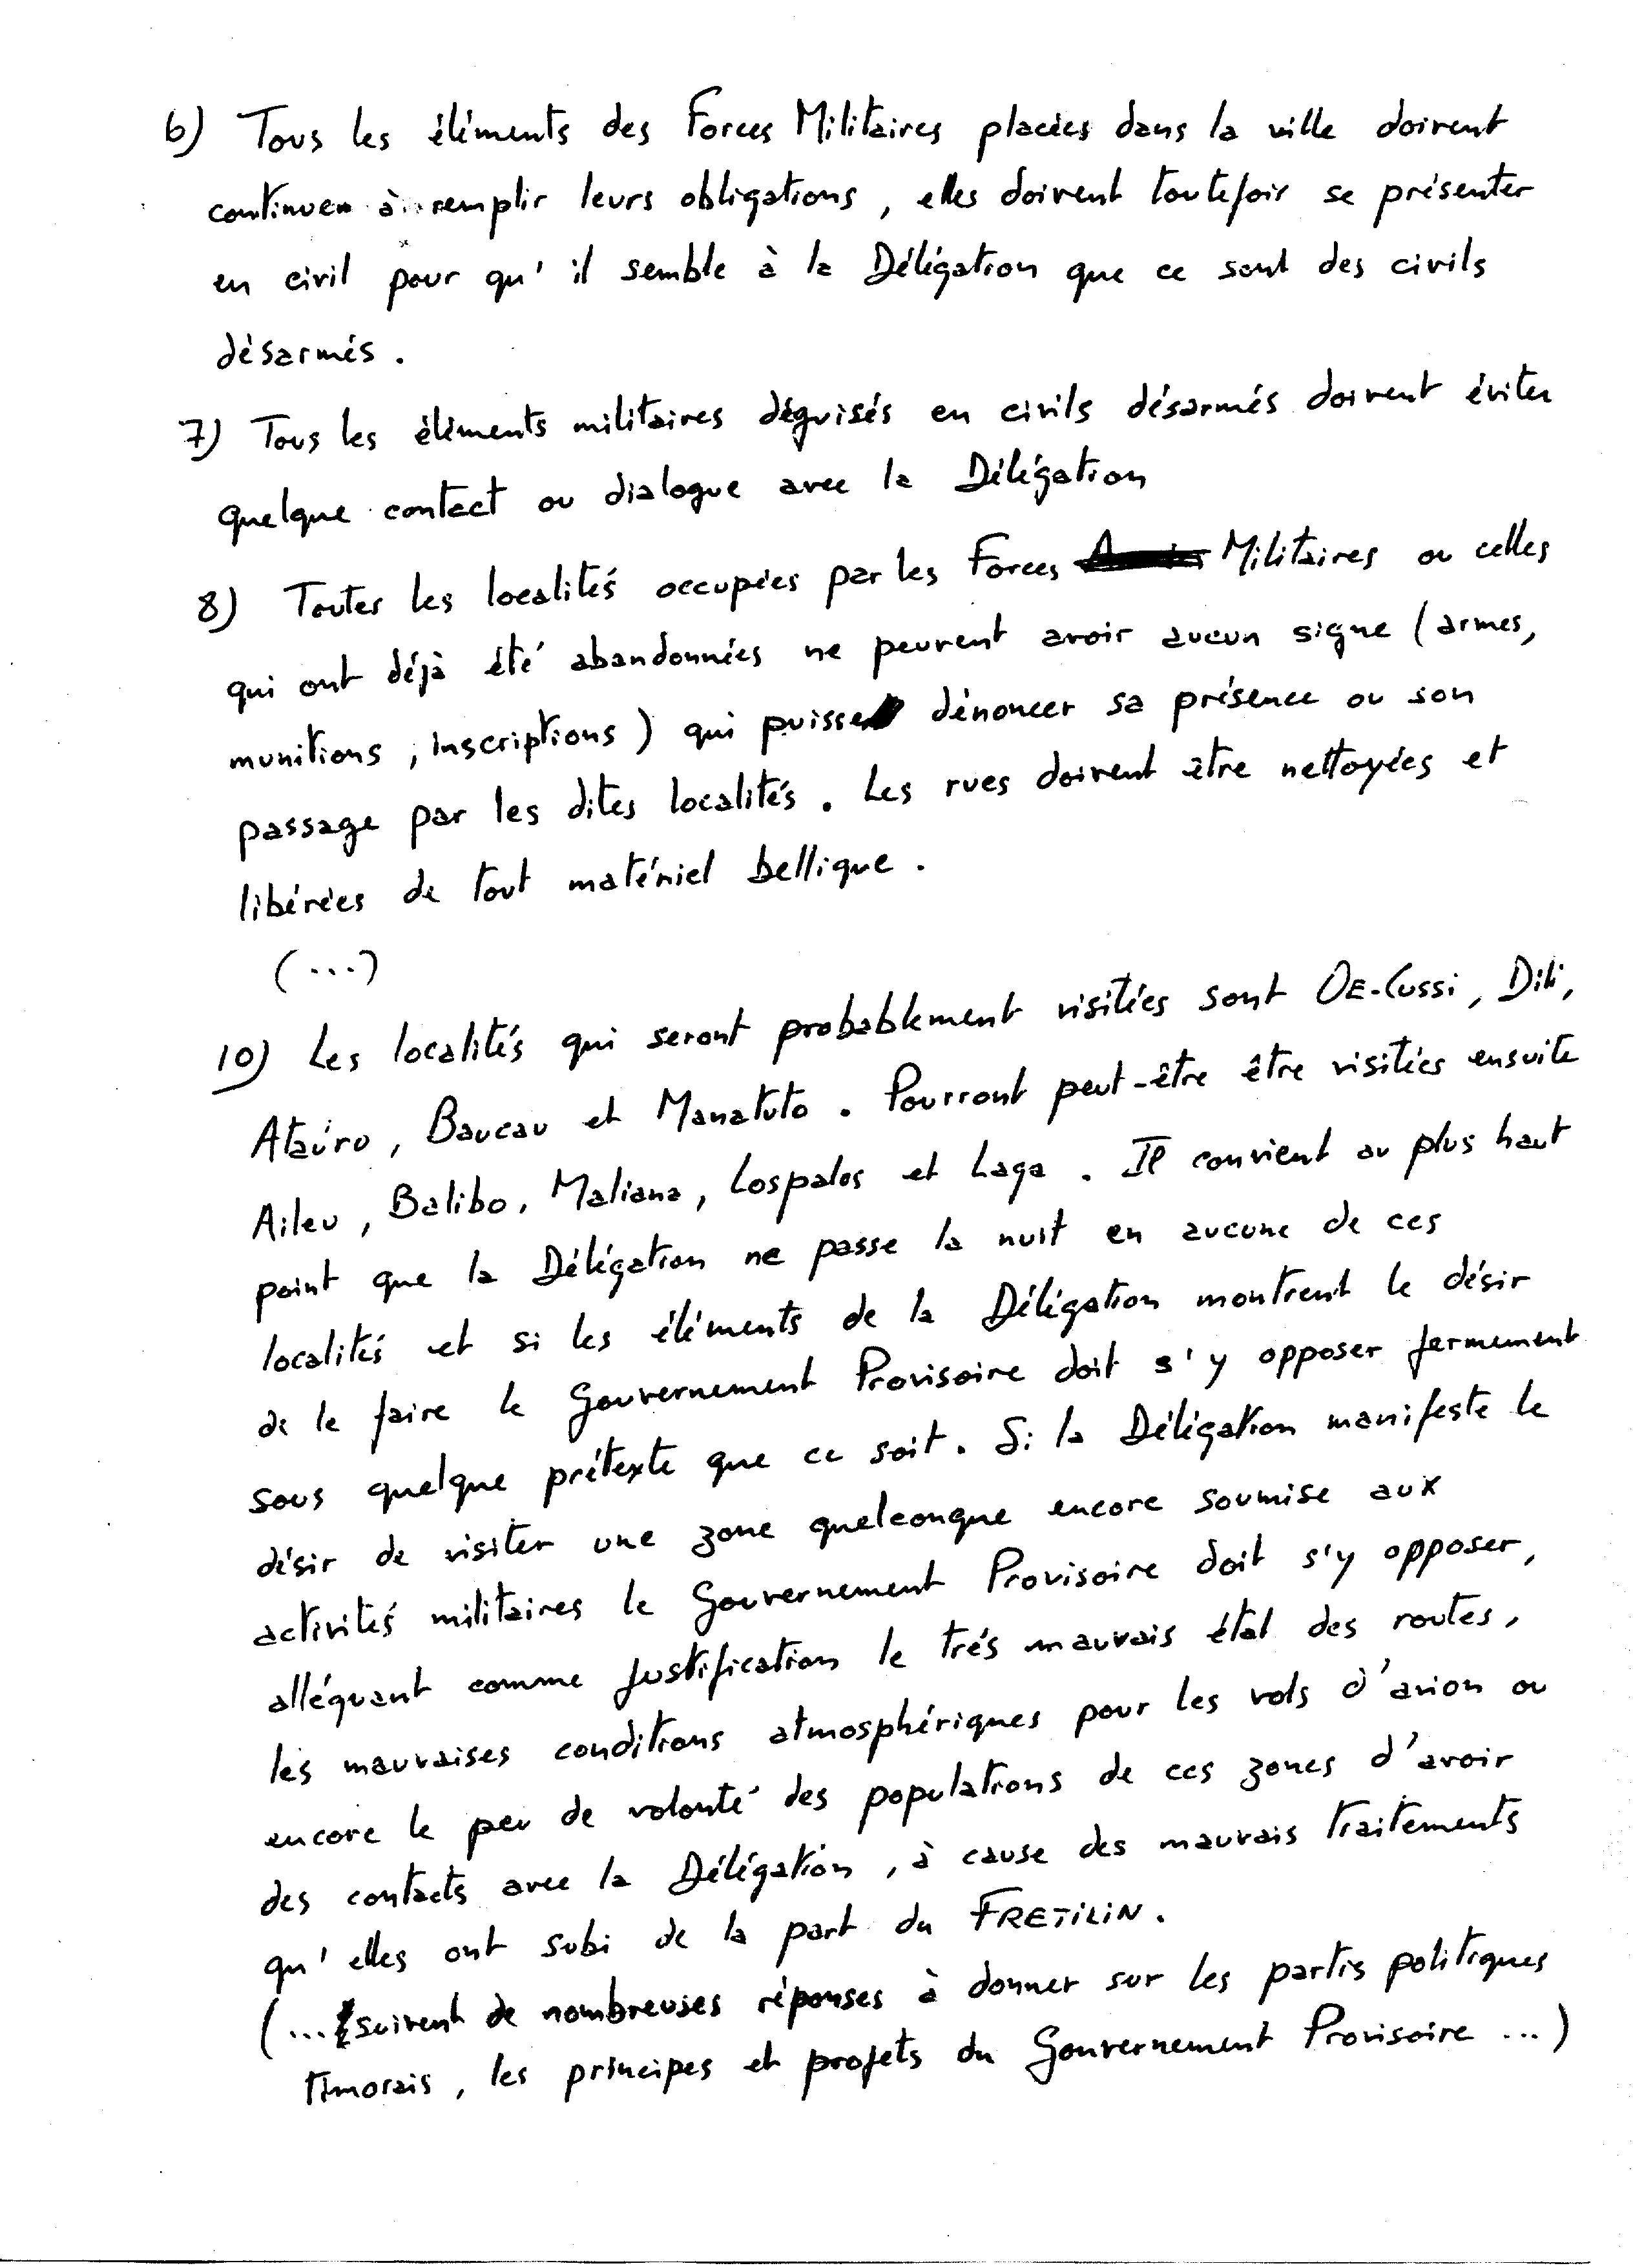 6) Tous les éléments des Forces Militaires placées dans la ville doivent
continuer à remplir leurs obligations, elles doivent toutefoir se présenter
en civil pour qu'il semble à la Délégation que ce sont des civils
désarmés.
7) Tous les éléments militaires déguisés en civils désarmés doivent éviter
quelque contact ou dialogue avec la Délégation
8) Toutes les localités occupées par les Forces Militaires ou celles
qui ont déjà été abandonnées ne peuvent avoir aucun signe (armes,
munitions, inscriptions) qui puisse dénoncer sa présence ou son
passage par les dites localités. Les rues doivent être nettoyées et
libérées de tout matériel bellique.
(...)
10) Les localités qui seront probablement visitées sont OE-Cussi, Dili,
Ataúro, Baucau et Manatuto. Pourront peut-être être visitées ensuite
Aileu, Balibo, Maliana, Lospalos et Laga. Il convient au plus haut
point que la Délégation ne passe la nuit en aucune de ces
localités et si les éléments de la Délégation montrent le désir
de le faire le Gouvernement Provisoire doit s'y opposer fermement
sous quelque prétexte que ce soit. Si la Délégation manifeste le
désir de visiter une zone quelconque encore soumise aux
activités militaires le Gouvernement Provisoire doit s'y opposer,
alléguant comme justification le trés mauvais état des routes,
les mauvaises conditions atmosphériques pour les vols d'avion ou
encore le peu de volonté des populations de ces zones d'avoir
des contacts avec la Délégation, à cause des mauvais traitements
qu'elles ont subi de la part du FRETILIN.
(... suivent de nombreuses réponses à donner sur les partis politiques
timorais, les principes et projets du Gouvernement Provisoire ...)